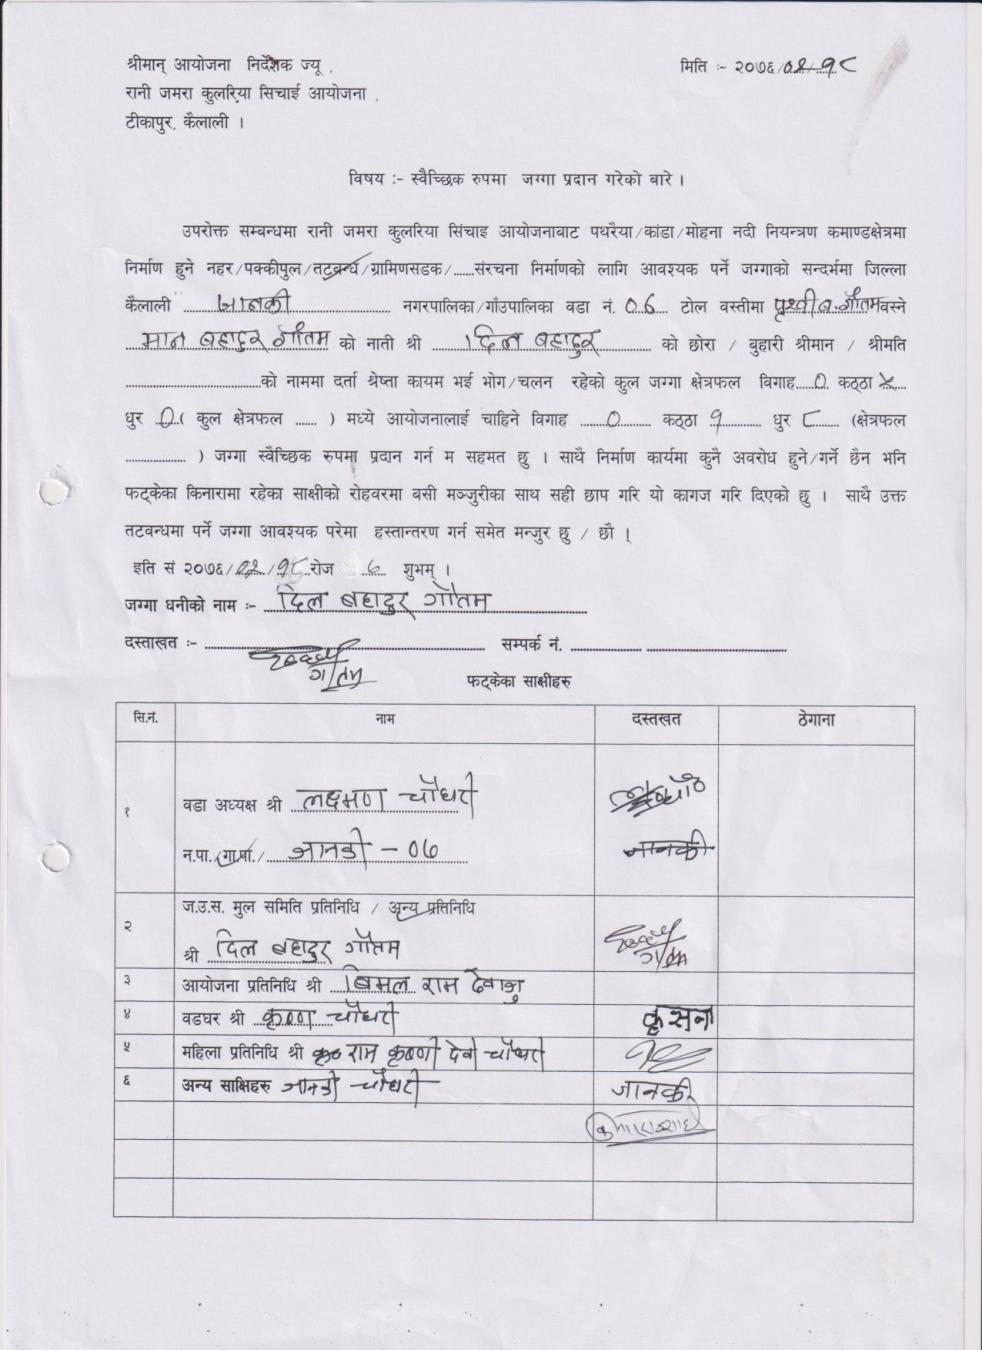 श्रीमान् आयोजना निर्देशक ज्यू ,
मिति :- २०७६/०२/१८
रानी जमरा कुलरिया सिचाई आयोजना ,
टीकापुर, कैलाली ।
विषय :- स्वैच्छिक रुपमा जग्गा प्रदान गरेको बारे ।
उपरोक्त सम्बन्धमा रानी जमरा कुलरिया सिंचाइ आयोजनाबाट पथरैया/कांडा/मोहना नदी नियन्त्रण कमाण्डक्षेत्रमा
निर्माण हुने नहर/पक्कीपुल/तटबन्ध/ग्रामिणसडक/......संरचना निर्माणको लागि आवश्यक पर्ने जग्गाको सन्दर्भमा जिल्ला
कैलाली जानकी नगरपालिका/गाँउपालिका वडा नं. ०६ टोल वस्तीमा पृथ्वी व. गौतम वस्ने
मान बहादुर गौतम को नाती श्री दिल बहादुर को छोरा / वुहारी श्रीमान / श्रीमति
.................को नाममा दर्ता श्रेष्ता कायम भई भोग/चलन रहेको कुल जग्गा क्षेत्रफल विगाह ० कठ्ठा
धुर ० ( कुल क्षेत्रफल ...... ) मध्ये आयोजनालाई चाहिने विगाह ० कठ्ठा १ धुर ८ (क्षेत्रफल
................ ) जग्गा स्वैच्छिक रुपमा प्रदान गर्न म सहमत छु । साथै निर्माण कार्यमा कुनै अवरोध हुने/गर्ने छैन भनि
फट्केका किनारामा रहेका साक्षीको रोहवरमा बसी मञ्जुरीका साथ सही छाप गरि यो कागज गरि दिएको छु । साथै उक्त
तटवन्धमा पर्ने जग्गा आवश्यक परेमा हस्तान्तरण गर्न समेत मन्जुर छु / छौ ।
इति सं २०७६/०२/१८ रोज ६ शुभम् ।
जग्गा धनीको नाम :- दिल बहादुर गौतम
दस्ताखत :- ................ सम्पर्क नं. ................
फट्केका साक्षीहरु
सि.नं. नाम दस्तखत ठेगाना
१ वडा अध्यक्ष श्री लक्ष्मण चौधरी
न.पा./गा.पा./ जानकी - ०६ जानकी
२ ज.उ.स. मुल समिति प्रतिनिधि / अन्य प्रतिनिधि
श्री दिल बहादुर गौतम
३ आयोजना प्रतिनिधि श्री बिमल राम
४ वडघर श्री कृष्ण चौधरी कृसना
५ महिला प्रतिनिधि श्री राम कृष्णी देवी चौधरी
६ अन्य साक्षिहरु जानकी चौधरी जानकी